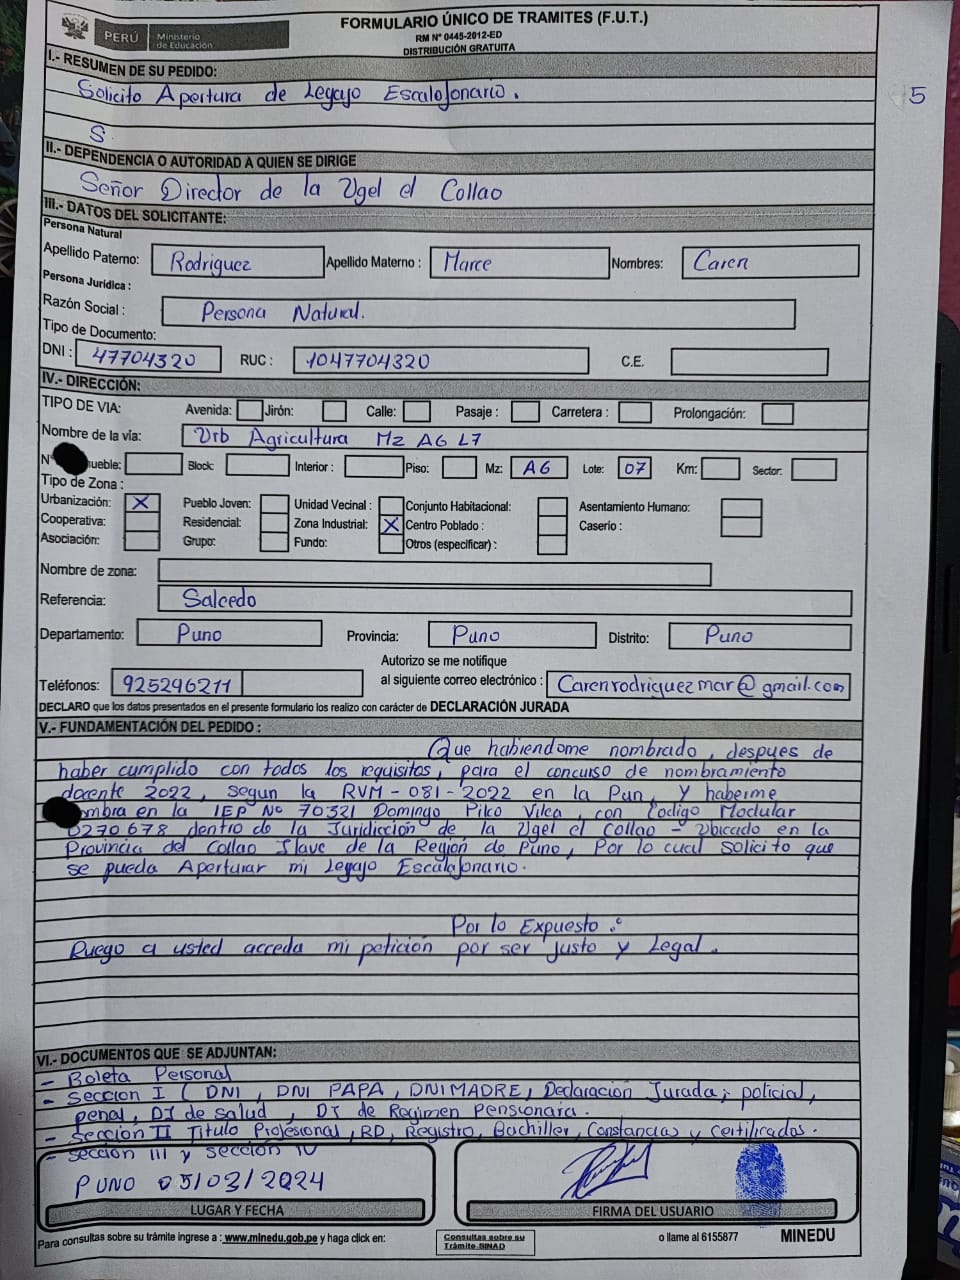 PERÚ Ministerio de Educación
FORMULARIO ÚNICO DE TRAMITES (F.U.T.)
RM Nº 0445-2012-ED
DISTRIBUCIÓN GRATUITA
I.- RESUMEN DE SU PEDIDO:
Solicito Apertura de Legajo Escalafonario.
5
S
II.- DEPENDENCIA O AUTORIDAD A QUIEN SE DIRIGE
Señor Director de la Ugel el Collao
III.- DATOS DEL SOLICITANTE:
Persona Natural
Apellido Paterno: Rodriguez Apellido Materno : Marce Nombres: Caren
Persona Jurídica :
Razón Social : Persona Natural.
Tipo de Documento:
DNI : 47704320 RUC : 1047704320 C.E.
IV.- DIRECCIÓN:
TIPO DE VIA: Avenida: Jirón: Calle: Pasaje : Carretera : Prolongación:
Nombre de la vía: Urb Agricultura Mz A6 L7
Nº ueble: Block: Interior : Piso: Mz: A6 Lote: 07 Km: Sector:
Tipo de Zona :
Urbanización: X Pueblo Joven: Unidad Vecinal : Conjunto Habitacional: Asentamiento Humano:
Cooperativa: Residencial: Zona Industrial: X Centro Poblado : Caserío :
Asociación: Grupo: Fundo: Otros (especificar) :
Nombre de zona:
Referencia: Salcedo
Departamento: Puno Provincia: Puno Distrito: Puno
Autorizo se me notifique
Teléfonos: 925296211 al siguiente correo electrónico : Carenrodriguezmar@gmail.com
DECLARO que los datos presentados en el presente formulario los realizo con carácter de DECLARACIÓN JURADA
V.- FUNDAMENTACIÓN DEL PEDIDO :
Que habiendome nombrado, despues de
haber cumplido con todos los requisitos, para el concurso de nombramiento
docente 2022, segun la RVM - 081-2022 en la Pun, y haberme
ombra en la IEP Nº 70321 Domingo Pilco Vilca, con Codigo Modular
0270678 dentro de la Juridicción de la Ugel el Collao - Ubicado en la
Provincia del Collao Ilave de la Region de Puno, Por lo cual solicito que
se pueda Aperturar mi Legajo Escalafonario.
Por lo Expuesto :
Ruego a usted acceda mi petición por ser justo y Legal.
VI.- DOCUMENTOS QUE SE ADJUNTAN:
- Boleta Personal
- Seccion I ( DNI, DNI PAPA, DNI MADRE, Declaración Jurada; policial,
penal, DJ de salud, DJ de Regimen Pensionara.
- Seccion II Titulo Profesional, RD, Registro, Bachiller, Constancias y Certificados.
- Sección III y Sección IV
PUNO 05/03/2024
LUGAR Y FECHA FIRMA DEL USUARIO
Para consultas sobre su trámite ingrese a : www.minedu.gob.pe y haga click en: Consultas sobre su Trámite-SINAD o llame al 6155877 MINEDU